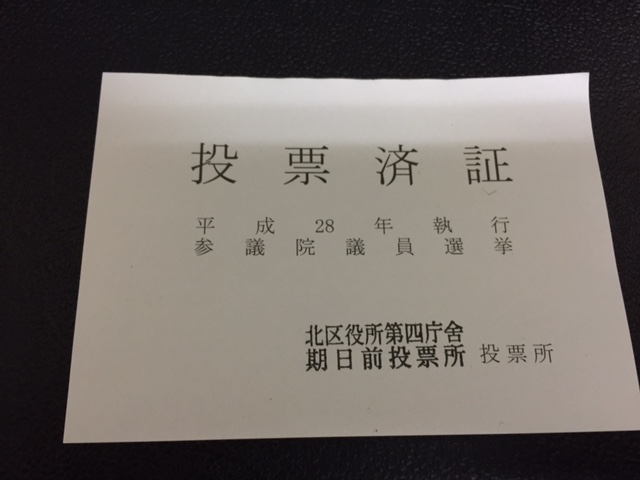 投票済証
平成28年執行
参議院議員選挙
北区役所第四庁舎
期日前投票所 投票所